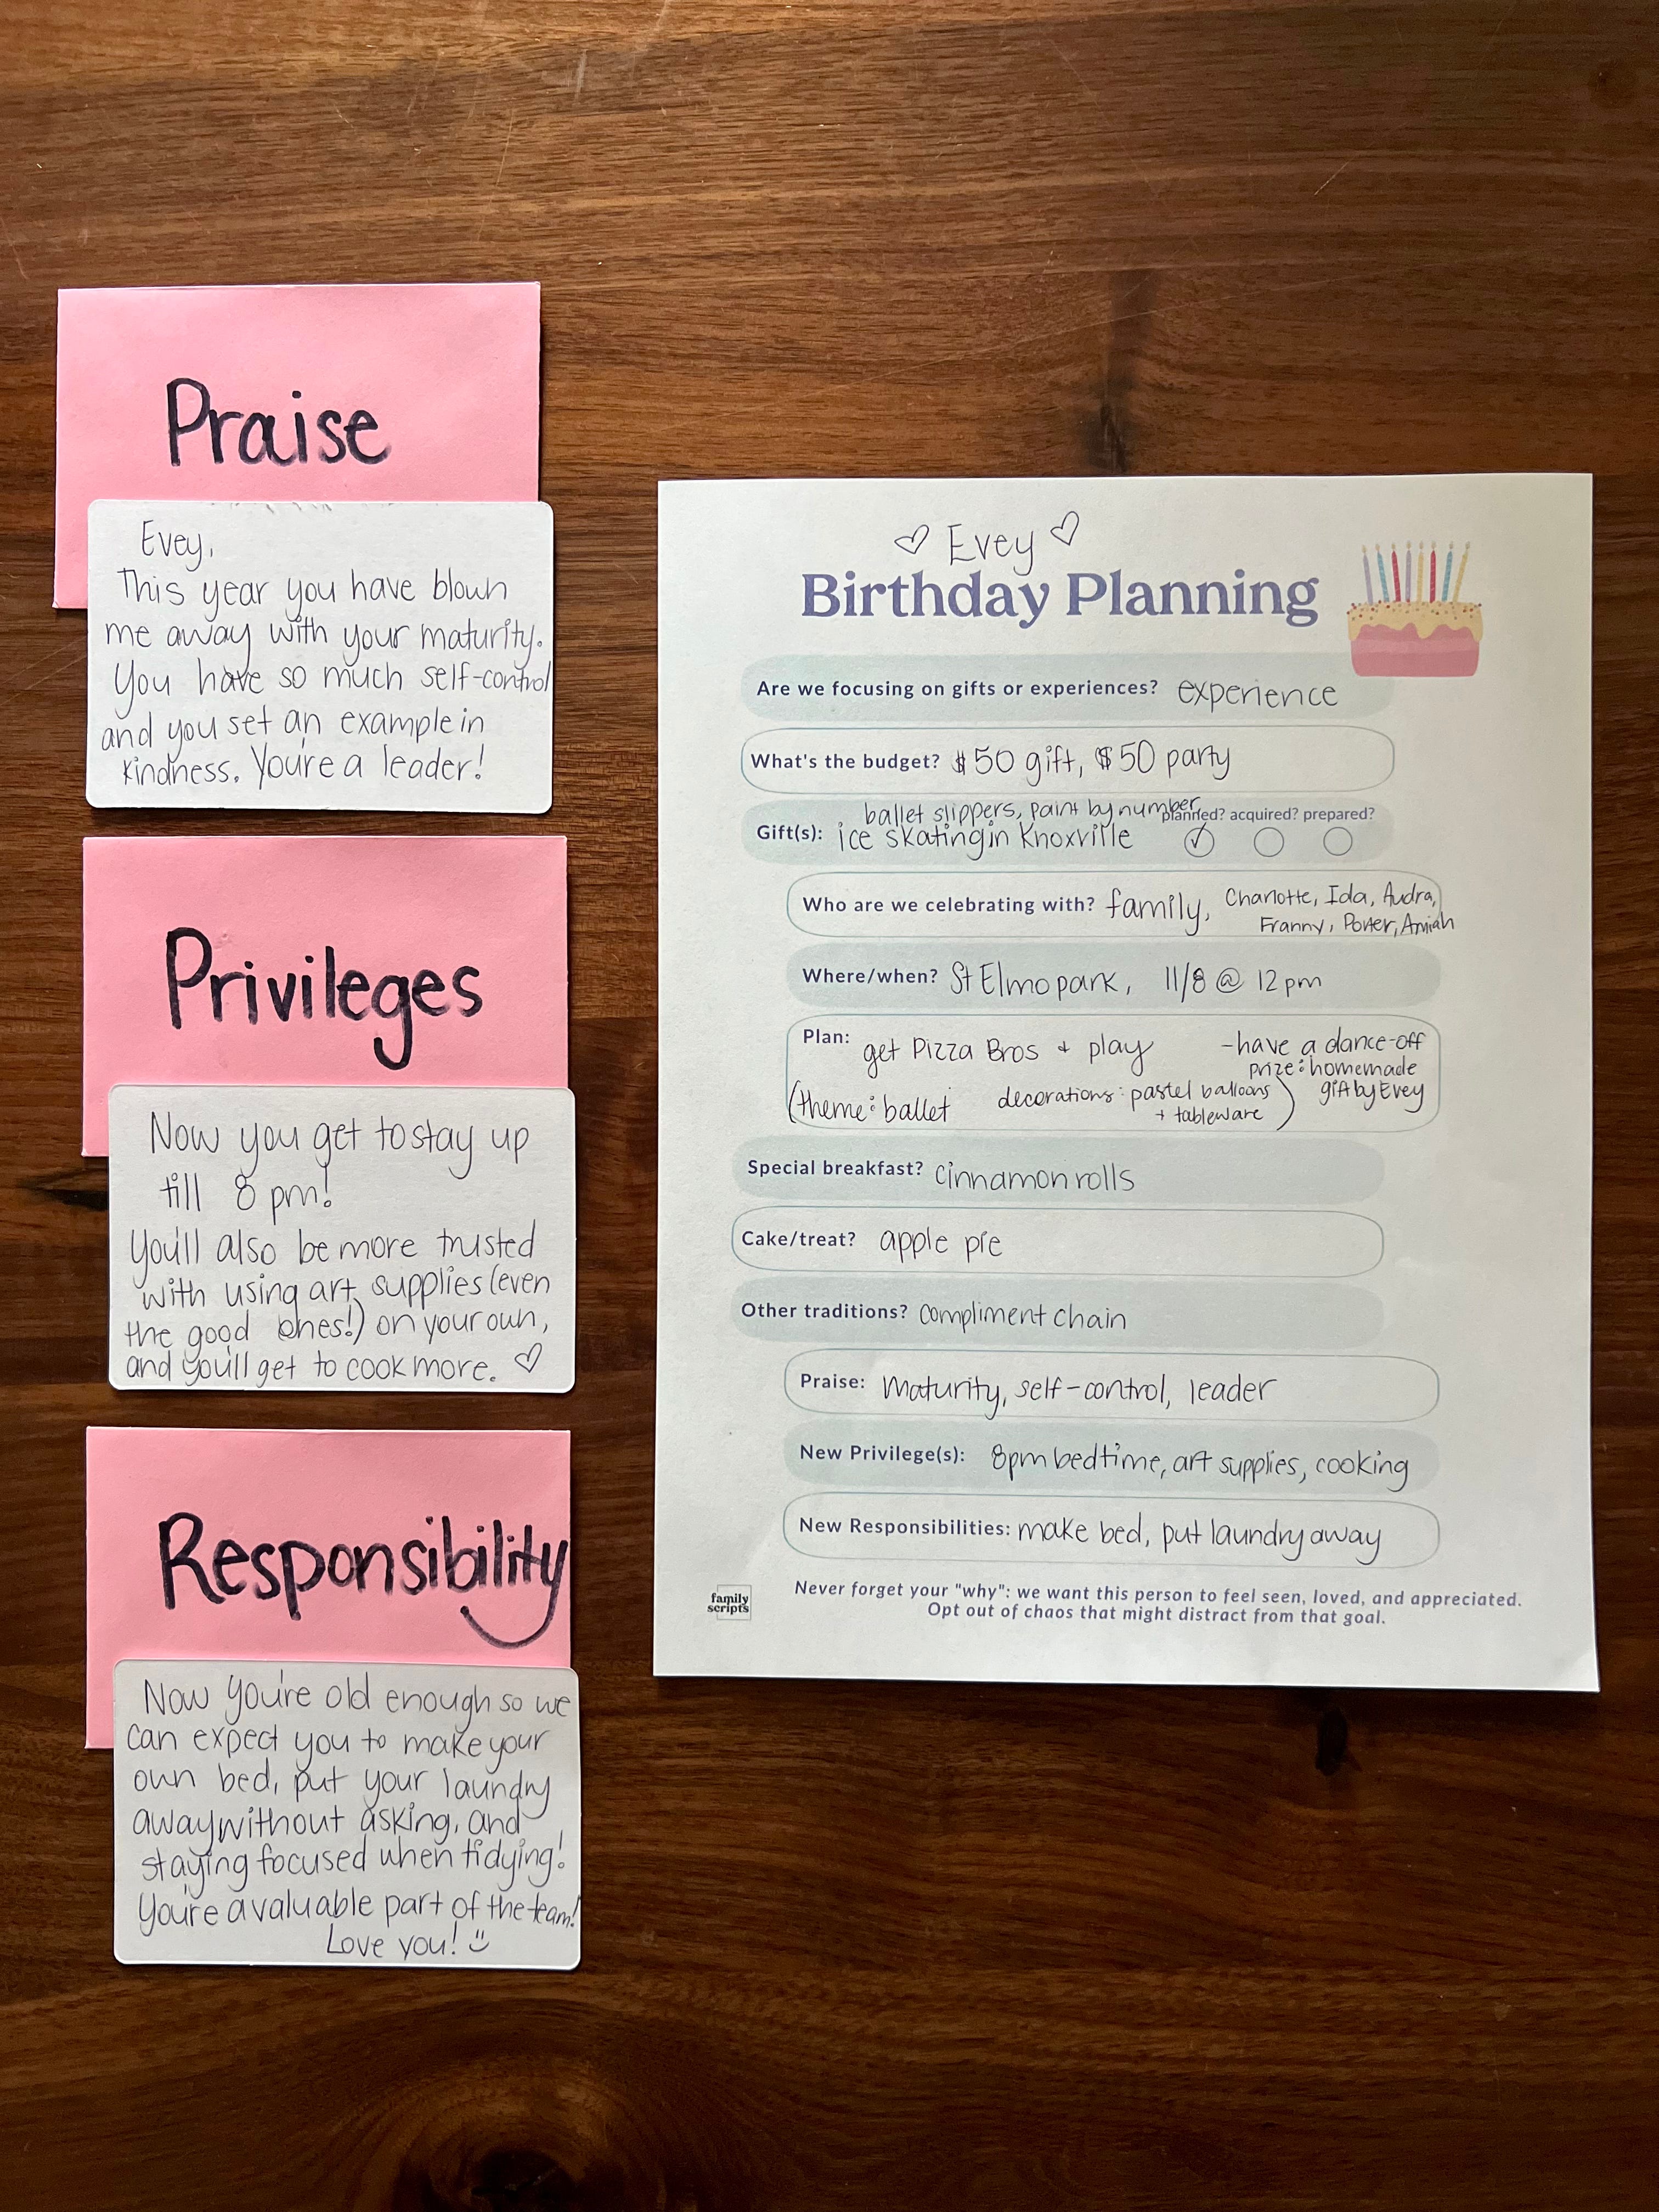 Praise
Evey,
This year you have blown
me away with your maturity.
You have so much self-control
and you set an example in
kindness. You're a leader!
Privileges
Now you get to stay up
till 8 pm!
You'll also be more trusted
with using art supplies (even
the good ones!) on your own,
and you'll get to cook more. ♡
Responsibility
Now you're old enough so we
can expect you to make your
own bed, put your laundry
away without asking, and
staying focused when tidying!
You're a valuable part of the team!
Love you! ☺
♡ Evey ♡
Birthday Planning
Are we focusing on gifts or experiences? experience
What's the budget? $50 gift, $50 party
ballet slippers, paint by number
planned? acquired? prepared?
Gift(s): ice skating in Knoxville ✓
Who are we celebrating with? family, Charlotte, Ida, Audra,
Franny, Porter, Amiah
Where/when? St Elmo park, 11/8 @ 12 pm
Plan: get Pizza Bros + play
-have a dance-off
prize: homemade
gift by Evey
(theme: ballet decorations: pastel balloons
+ tableware)
Special breakfast? cinnamon rolls
Cake/treat? apple pie
Other traditions? compliment chain
Praise: Maturity, self-control, leader
New Privilege(s): 8pm bedtime, art supplies, cooking
New Responsibilities: make bed, put laundry away
family
scripts
Never forget your "why": we want this person to feel seen, loved, and appreciated.
Opt out of chaos that might distract from that goal.